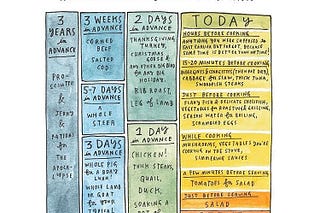 3
YEARS
in ADVANCE
PRO-
SCIUTTO
&
JERKY
&
RATIONS
for
THE
APOCA-
LYPSE
3 WEEKS
in ADVANCE
CORNED
BEEF
SALTED
COD
5-7 DAYS
in ADVANCE
A
WHOLE
STEER
3 DAYS
in ADVANCE
WHOLE PIG
for A BDAY
LUAU
WHOLE LAMB
or GOAT
for YOUR
TYPICAL
2 DAYS
in ADVANCE
THANKSGIVING
TURKEY,
CHRISTMAS
GOOSE &
ANY OTHER BIG BIRD
for ANY BIG
HOLIDAY
RIB ROAST,
LEG of LAMB
1 DAY
in ADVANCE
CHICKEN!
THICK STEAKS,
QUAIL,
DUCK,
SOAKING A
POT of
TODAY
HOURS BEFORE COOKING
ANYTHING YOU WERE SUPPOSED to
SALT EARLIER BUT FORGOT, BECAUSE
SOME TIME IS BETTER THAN NO TIME!
15-20 MINUTES BEFORE COOKING
CABBAGE for SLAW, THICK TUNA,
SWORDFISH STEAKS
JUST BEFORE COOKING
FLAKY FISH & DELICATE SHELLFISH,
VEGETABLES for ROASTING & GRILLING,
SEASON WATER for BOILING,
SCRAMBLED EGGS
WHILE COOKING
MUSHROOMS, VEGETABLES YOU'RE
COOKING on THE STOVE,
SIMMERING SAUCES
A FEW MINUTES BEFORE SERVING
TOMATOES for SALAD
JUST BEFORE SERVING
SALAD